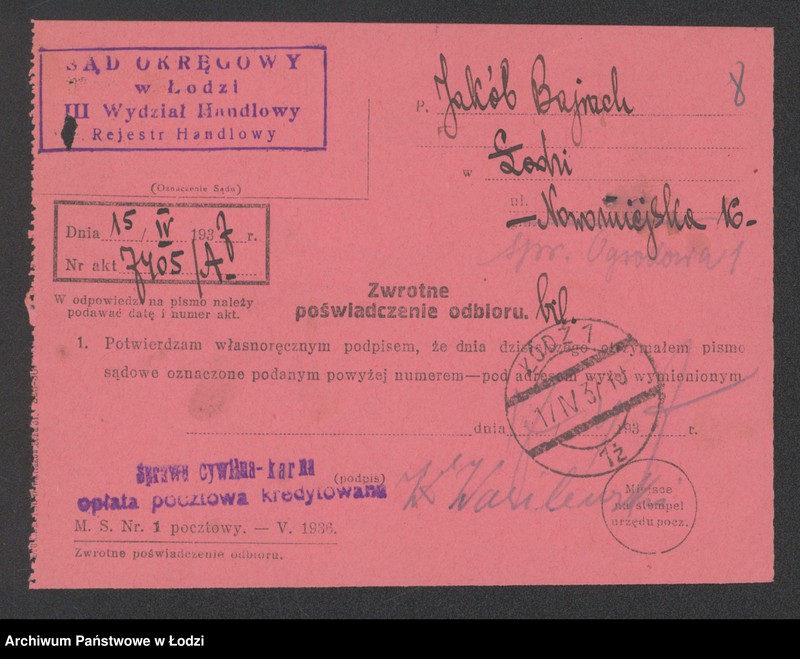 SĄD OKRĘGOWY
w Łodzi
III Wydział Handlowy
Rejestr Handlowy
(Oznaczenie Sądu)
8
P. Jakób Bajrach
w Łodzi
ul. Nowomiejska 16
spr. Ogrodowa 1
Dnia 15 / IV 1937 r.
Nr akt 7405/A
W odpowiedzi na pismo należy
podawać datę i numer akt.
Zwrotne
poświadczenie odbioru.
1. Potwierdzam własnoręcznym podpisem, że dnia dzisiejszego otrzymałem pismo
sądowe oznaczone podanym powyżej numerem—pod adresem wyżej wymienionym.
ŁÓDŹ 1
17 IV 37
1ż
dnia 193 r.
Sprawa cywilna-karna
opłata pocztowa kredytowana
(podpis)
Miejsce
na stempel
urzędu pocz.
M. S. Nr. 1 pocztowy. — V. 1936.
Zwrotne poświadczenie odbioru.
Archiwum Państwowe w Łodzi